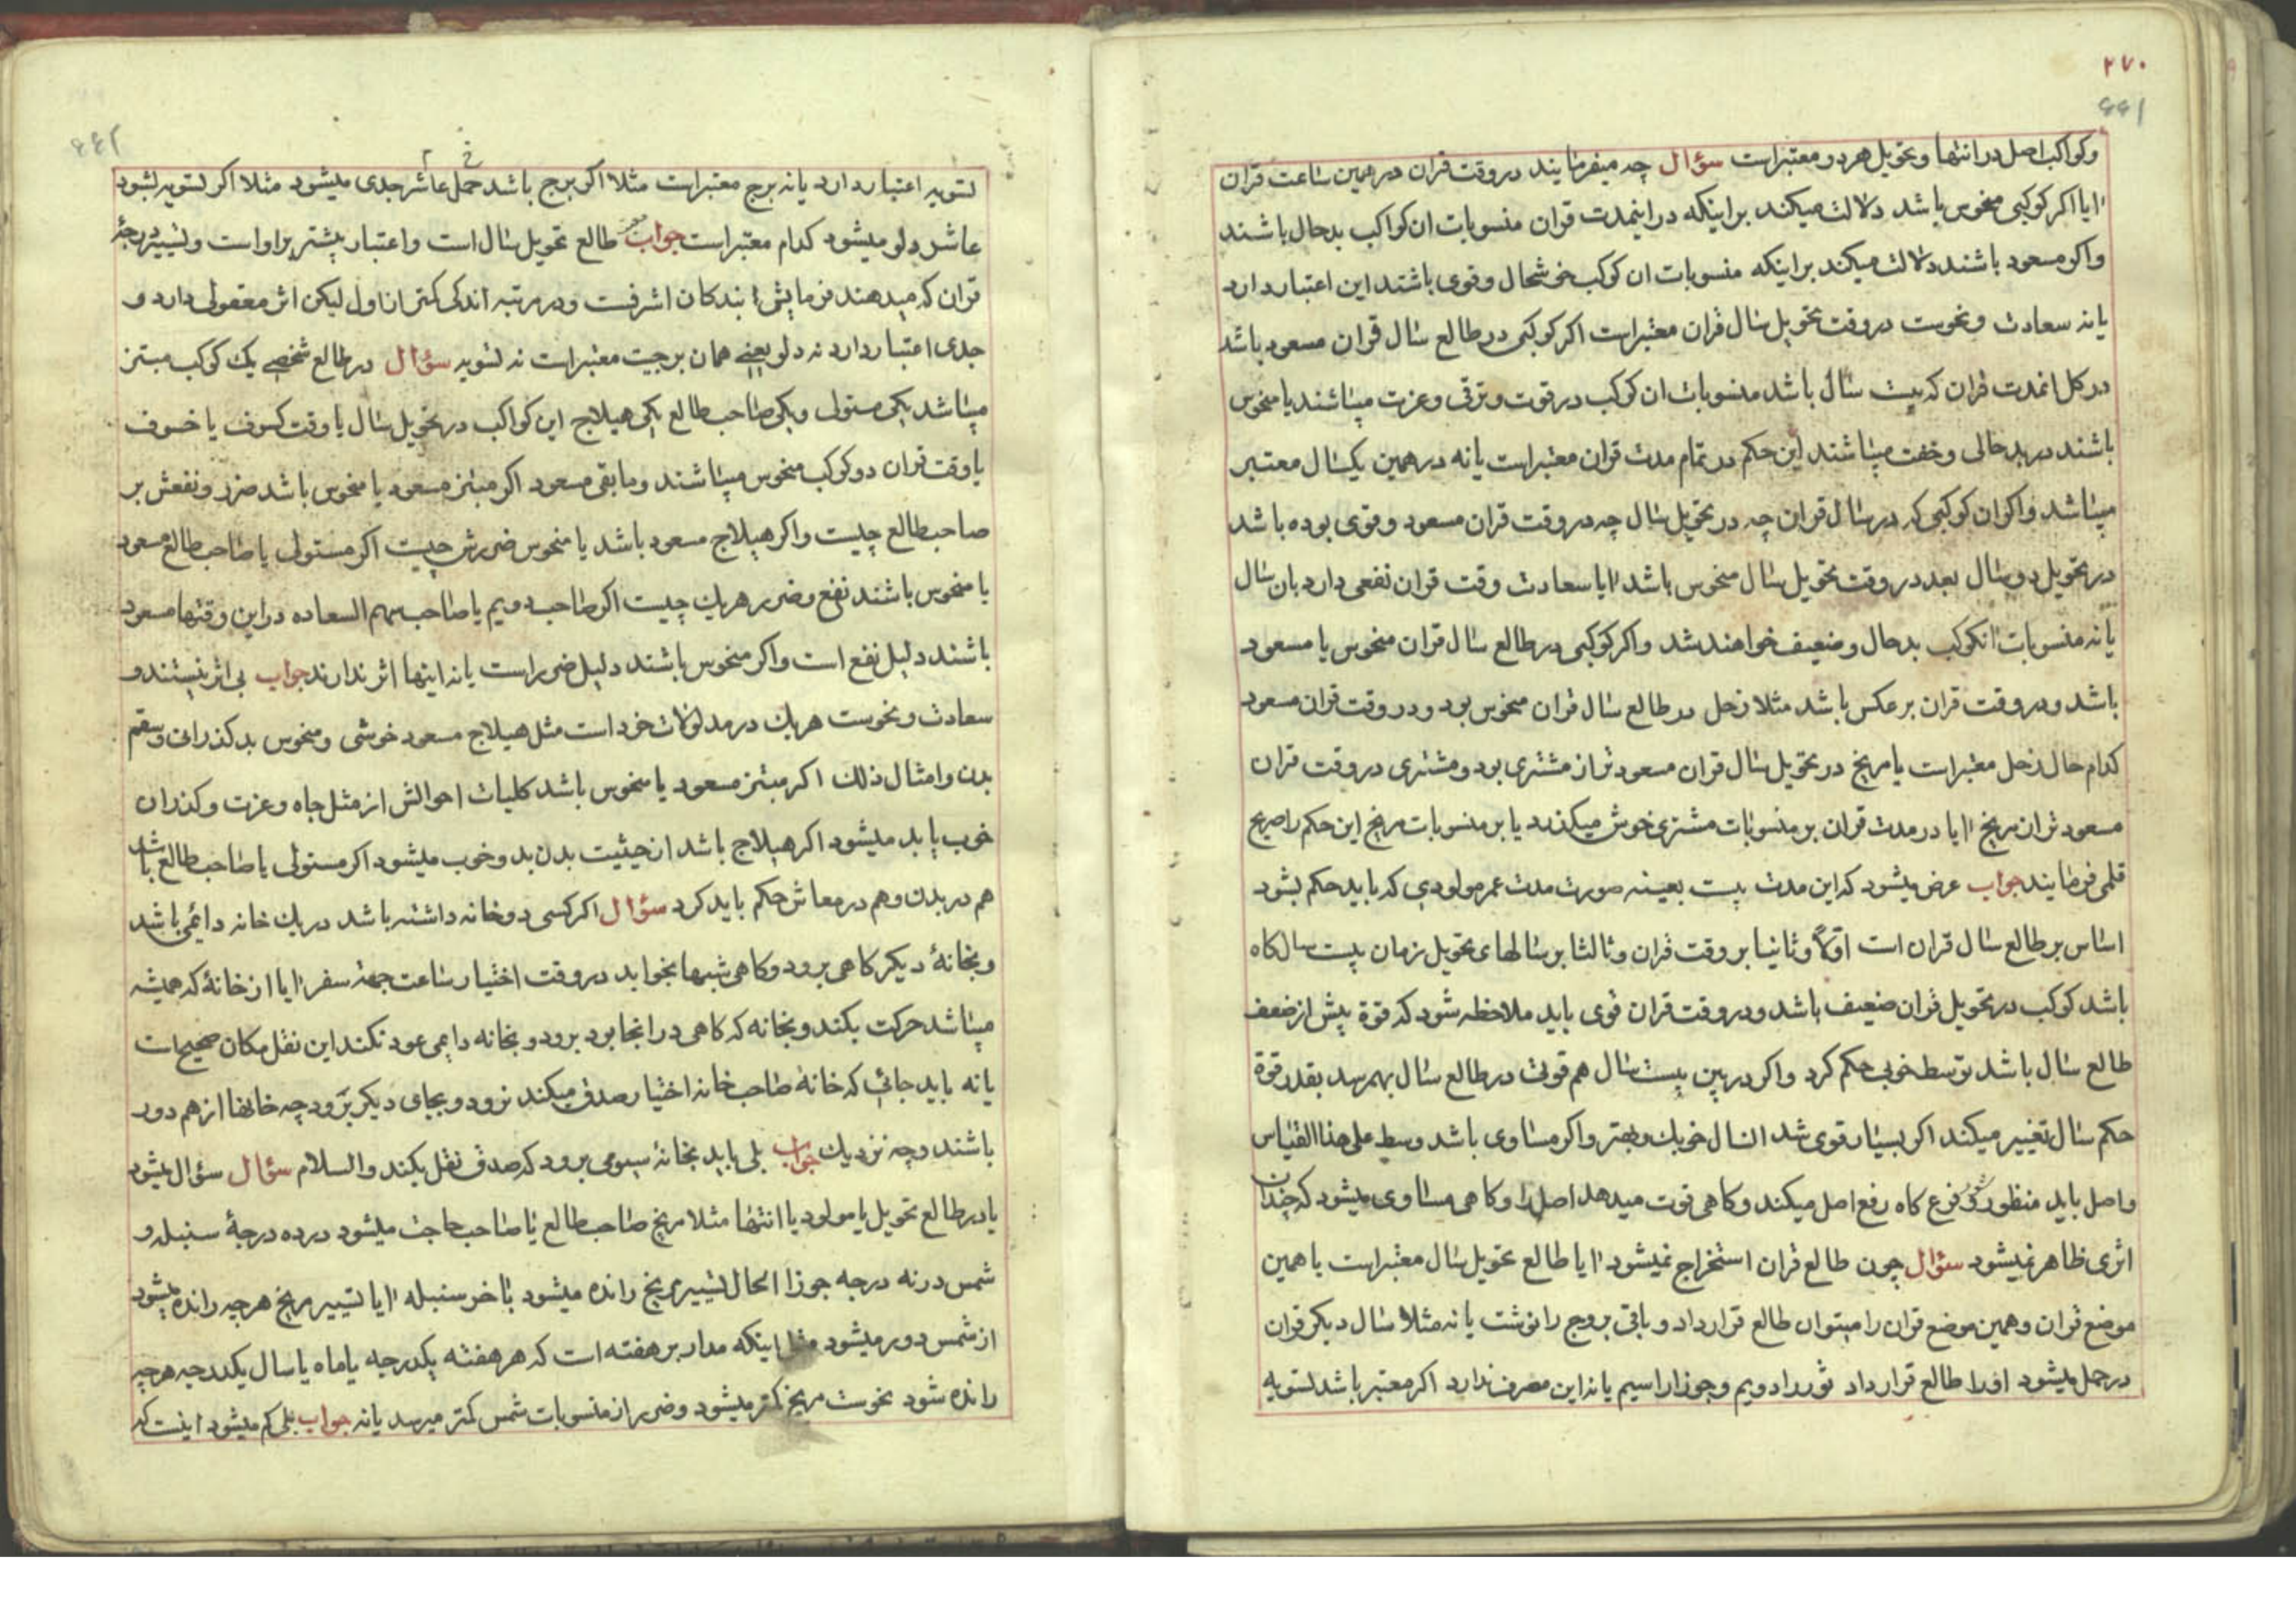 ۲۷۰
۴۴۱
وکواکب اصل در انتها و تحویل هر دو معتبر است سؤال چه میفرمایند در وقت قران در همین ساعت قران
ایا اکر کوکبی منحوس باشد دلالت میکند بر اینکه در اینمدت قران منسوبات ان کواکب بدحال باشند
واکر مسعود باشند دلالت میکند بر اینکه منسوبات ان کوکب خوشحال و قوی باشند این اعتبار دارد
یا نه سعادت و نحوست در وقت تحویل سال قران معتبر است اکر کوکبی در طالع سال قران مسعود باشد
در کل انمدت قران که بیست سال باشد منسوبات ان کوکب در قوت و ترقی و عزت میباشند یا منحوس
باشند در بدحالی و خفت میباشند این حکم در تمام مدت قران معتبر است یا نه در همین یکسال معتبر
میباشد واکر ان کوکبی که در سال قران چه در تحویل سال چه در وقت قران مسعود و قوی بوده باشد
در تحویل دو سال بعد در وقت تحویل سال منحوس باشد ایا سعادت وقت قران نفعی دارد بان سال
یا نه منسوبات انکوکب بدحال و ضعیف خواهند شد واکر کوکبی در طالع سال قران منحوس یا مسعود
باشد و در وقت قران بر عکس باشد مثلا زحل در طالع سال قران منحوس بود و در وقت قران مسعود
کدام حال زحل معتبر است یا مریخ در تحویل سال قران مسعود تر از مشتری بود و مشتری در وقت قران
مسعود تر ان مریخ ایا در مدت قران بر منسوبات مشتری خوش میکذرد یا بر منسوبات مریخ این حکم را صریح
قلمی فرمایند جواب عرض میشود که این مدت بیست بعینه صورت مدت عمر مولودی که باید حکم بشود
اساس بر طالع سال قران است اولاً و ثانیا بر وقت قران و ثالثا بر سالهای تحویل زمان بیست سال کاه
باشد کوکب در تحویل قران ضعیف باشد و در وقت قران قوی باید ملاحظه شود که قوة بیش از ضعف
طالع سال باشد توسط خوبی حکم کرد واکر در بین بیست سال هم قوتی در طالع سال بهم رسد بقدر قوة
حکم سال تغییر میکند اکر بسیار قوی شد انسال خوبک و بهتر واکر مساوی باشد وسط علی هذا القیاس
واصل باید منظور شود فرع کاه رفع اصل میکند و کاهی قوت میدهد اصل را و کاهی مساوی میشود که چندان
اثری ظاهر نمیشود سؤال چون طالع قران استخراج نمیشود ایا طالع تحویل سال معتبر است یا همین
موضع قران و همین موضع قران را میتوان طالع قرار داد و باقی بروج را نوشت یا نه مثلا سال دیکر قران
در حمل میشود اورا طالع قرار داد ثور را دویم و جوزا را سیم یا نه این مصرف ندارد اکر معتبر باشد تسویه
۴۴۲
تسویه اعتبار دارد یا نه برج معتبر است مثلا اکر برج باشد حمل عاشر جدی میشود مثلا اکر تسویه بشود
عاشر دلو میشود کدام معتبر است جواب طالع تحویل سال است و اعتبار بیشتر بر او است و تسییر درجهٔ
قران که میدهند فرمایش بندکان اشرفست و در مرتبه اندکی کمتر از اول لیکن اثر معقولی دارد و
جدی اعتبار دارد نه دلو یعنی همان برجیت معتبر است نه تسویه سؤال در طالع شخصی یک کوکب مبتز
میباشد یکی مستولی و یکی صاحب طالع یکی هیلاج این کواکب در تحویل سال یا وقت کسوف یا خسوف
یا وقت قران دو کوکب منحوس میباشند و مابقی مسعود اکر مبتز مسعود یا منحوس باشد ضرر و نفعش بر
صاحب طالع چیست واکر هیلاج مسعود باشد یا منحوس ضررش چیست اکر مستولی یا صاحب طالع مسعود
یا منحوس باشند نفع و ضرر هریک چیست اکر صاحب دویم یا صاحب سهم السعاده در این وقتها مسعود
باشند دلیل نفع است واکر منحوس باشند دلیل ضرر است یا نه اینها اثر ندارند جواب بی اثر نیستند و
سعادت و نحوست هریک در مدلولات خود است مثل هیلاج مسعود خوشی و منحوس بدکذران و سقم
بدن و امثال ذلک اکر مبتز مسعود یا منحوس باشد کلیات احوالش از مثل جاه و عزت و کذران
خوب یا بد میشود اکر هیلاج باشد از حیثیت بدن بد و خوب میشود اکر مستولی یا صاحب طالع باشد
هم در بدن و هم در معاش حکم باید کرد سؤال اکر کسی دو خانه داشته باشد در یک خانه دائمی باشد
و بخانهٔ دیکر کاهی برود و کاهی شبها بخوابد در وقت اختیار ساعت جهة سفر ایا از خانهٔ که همیشه
میباشد حرکت بکند و بخانه که کاهی در انجا بود برود و بخانه دایمی عود نکند این نقل مکان صحیح است
یا نه باید جائی که خانهٔ صاحب خانه اختیار صدق میکند نرود و بجای دیکر برود چه خانها از هم دور
باشند و چه نزدیک جواب بلی باید بخانهٔ سیومی برود که صدق نقل بکند والسلام سؤال سؤال میشود
یا در طالع تحویل یا مولود یا انتها مثلا مریخ صاحب طالع یا صاحب حاجت میشود در ده درجهٔ سنبله و
شمس در نه درجه جوزا الحال تسییر مریخ رانده میشود تا اخر سنبله ایا تسییر مریخ هرچه رانده میشود
از شمس دور میشود مثل اینکه مدار بر هفته است که هر هفته یکدرجه یا ماه یا سال یکدرجه هرچه
رانده شود نحوست مریخ کمتر میشود و ضرر از منسوبات شمس کمتر میرسد یا نه جواب بلی کم میشود اینست که